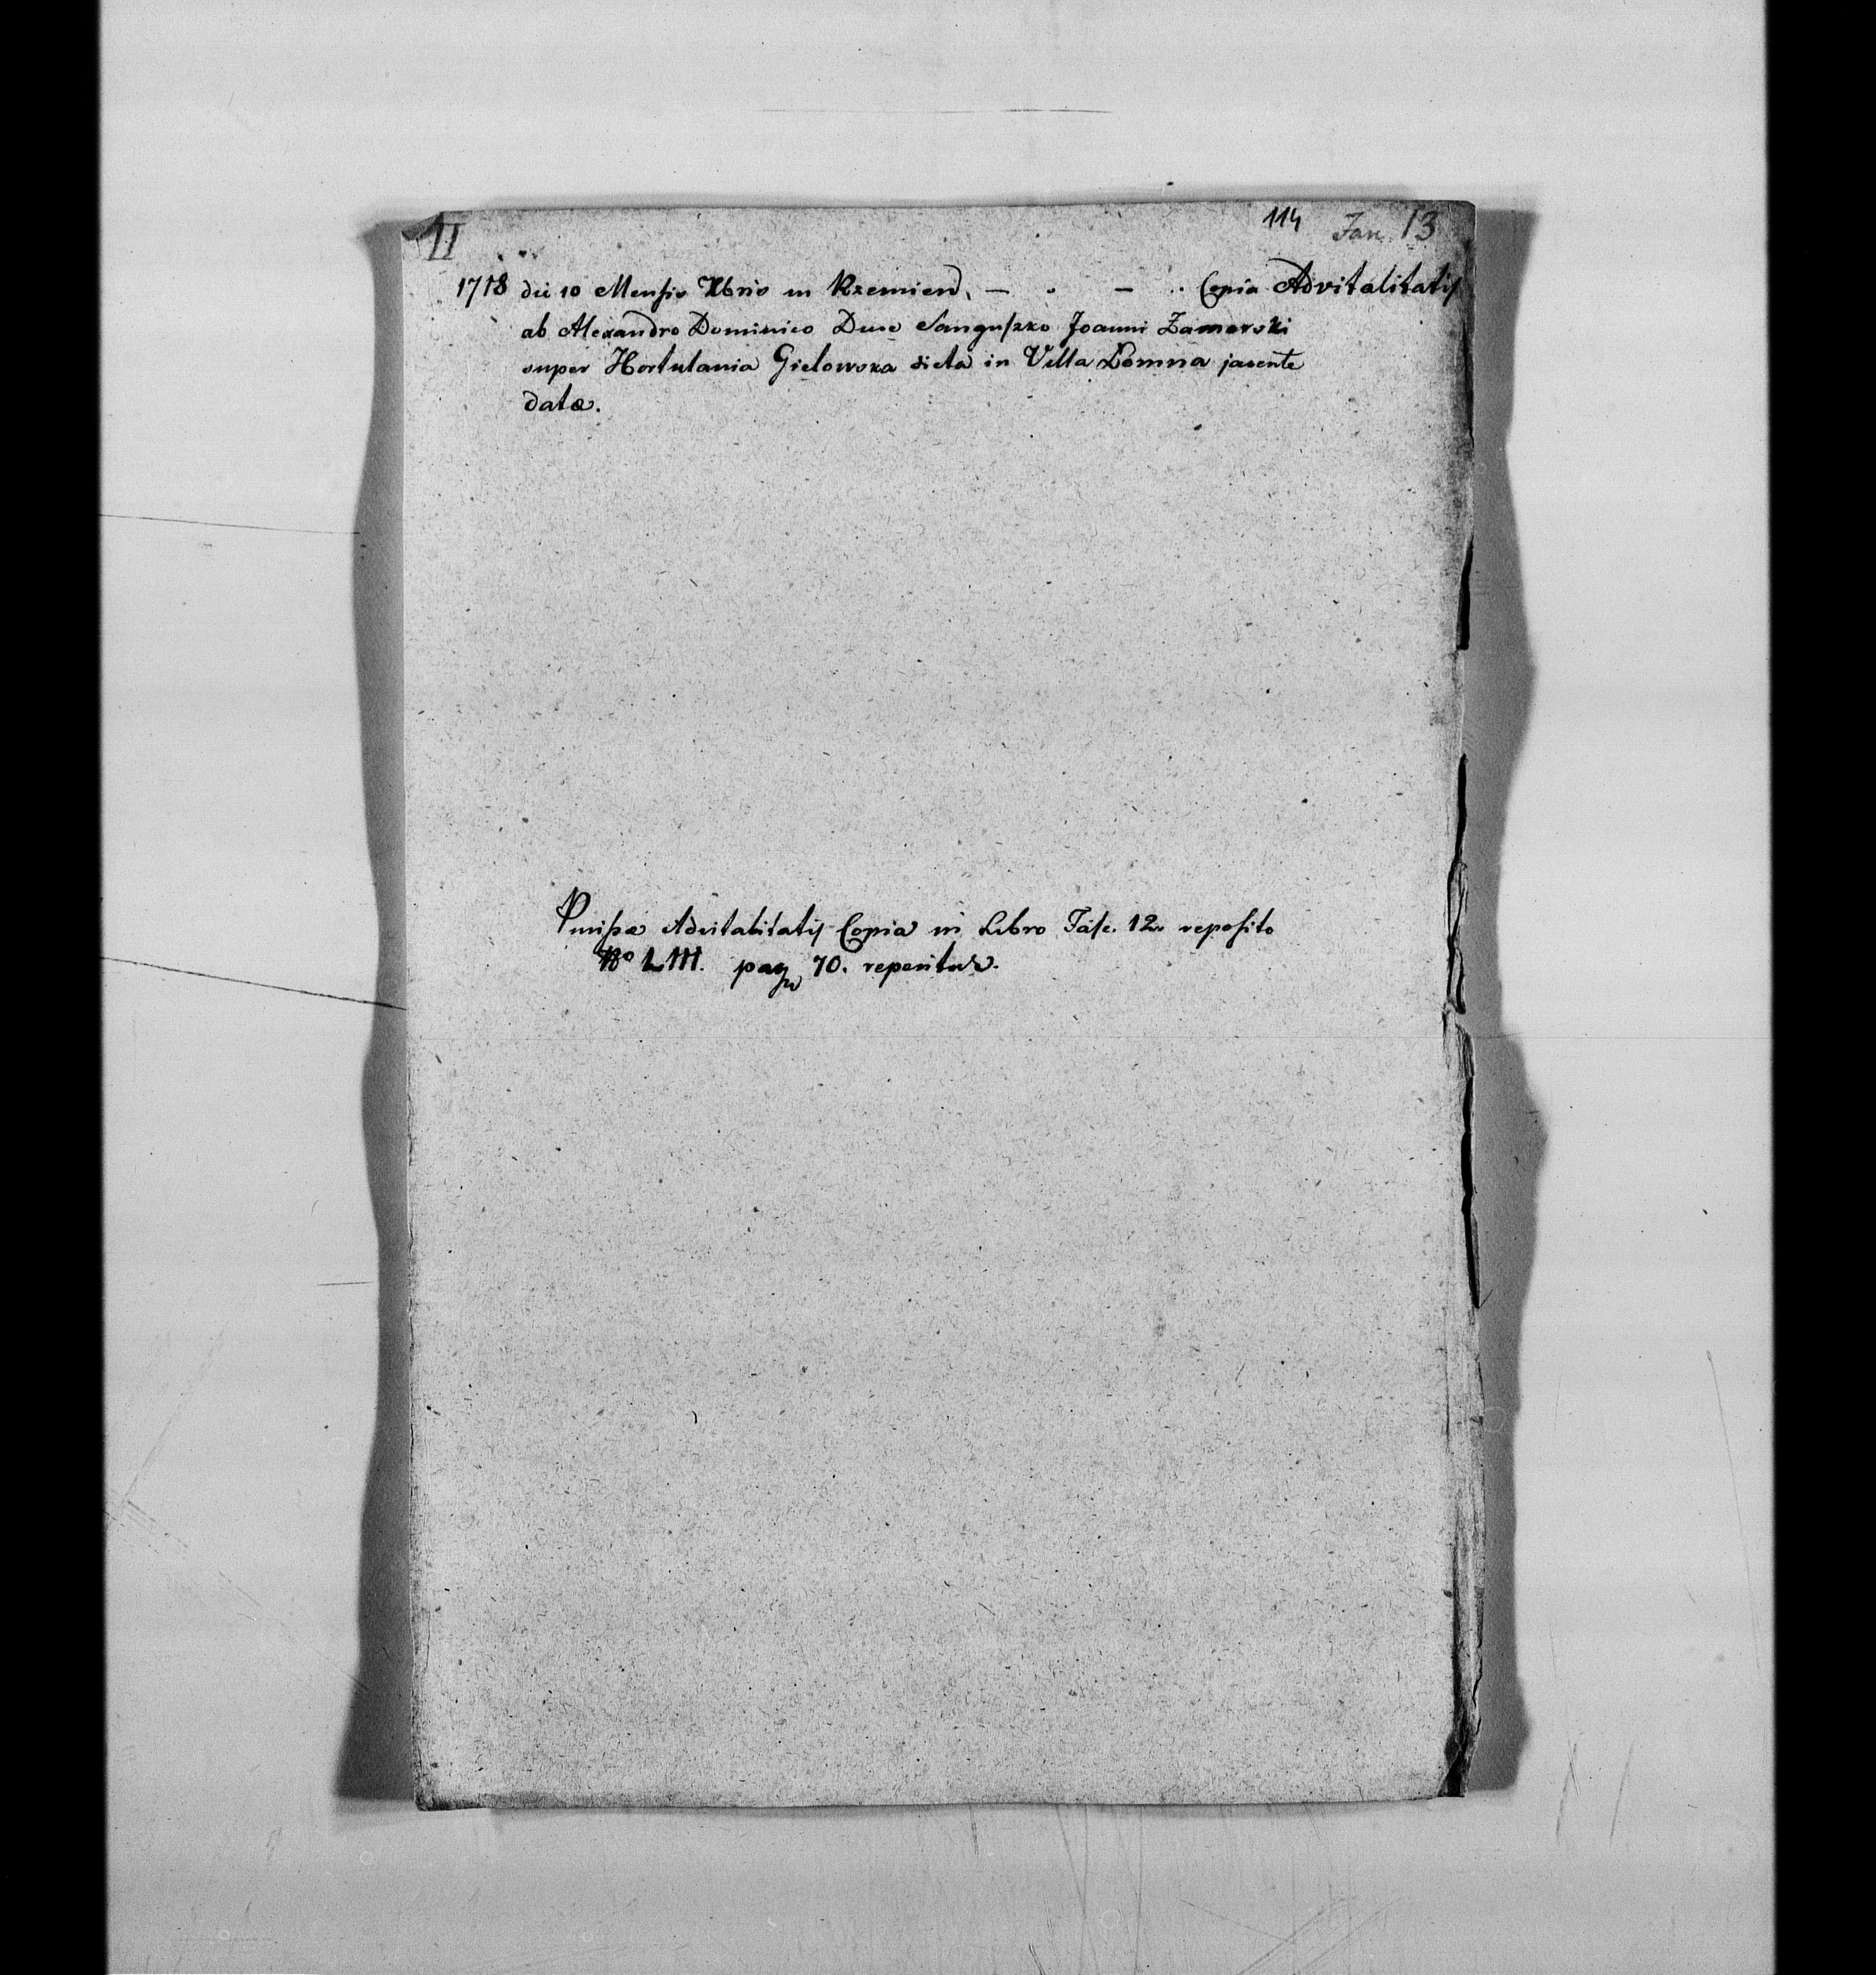 II
114 Jan. 13
1718 die 10 Mensis Xbris in Rzemien, — . — .. Copia Advitalitatis
ab Alexandro Dominico Duce Sanguszko Joanni Zamorski
super Hortulania Gielowska dicta in Villa Łomna jacente
datæ.
Pmissæ Advitalitatis Copia in Libro Fasc. 12. reposito
No LIII. pag 70. reperitur.